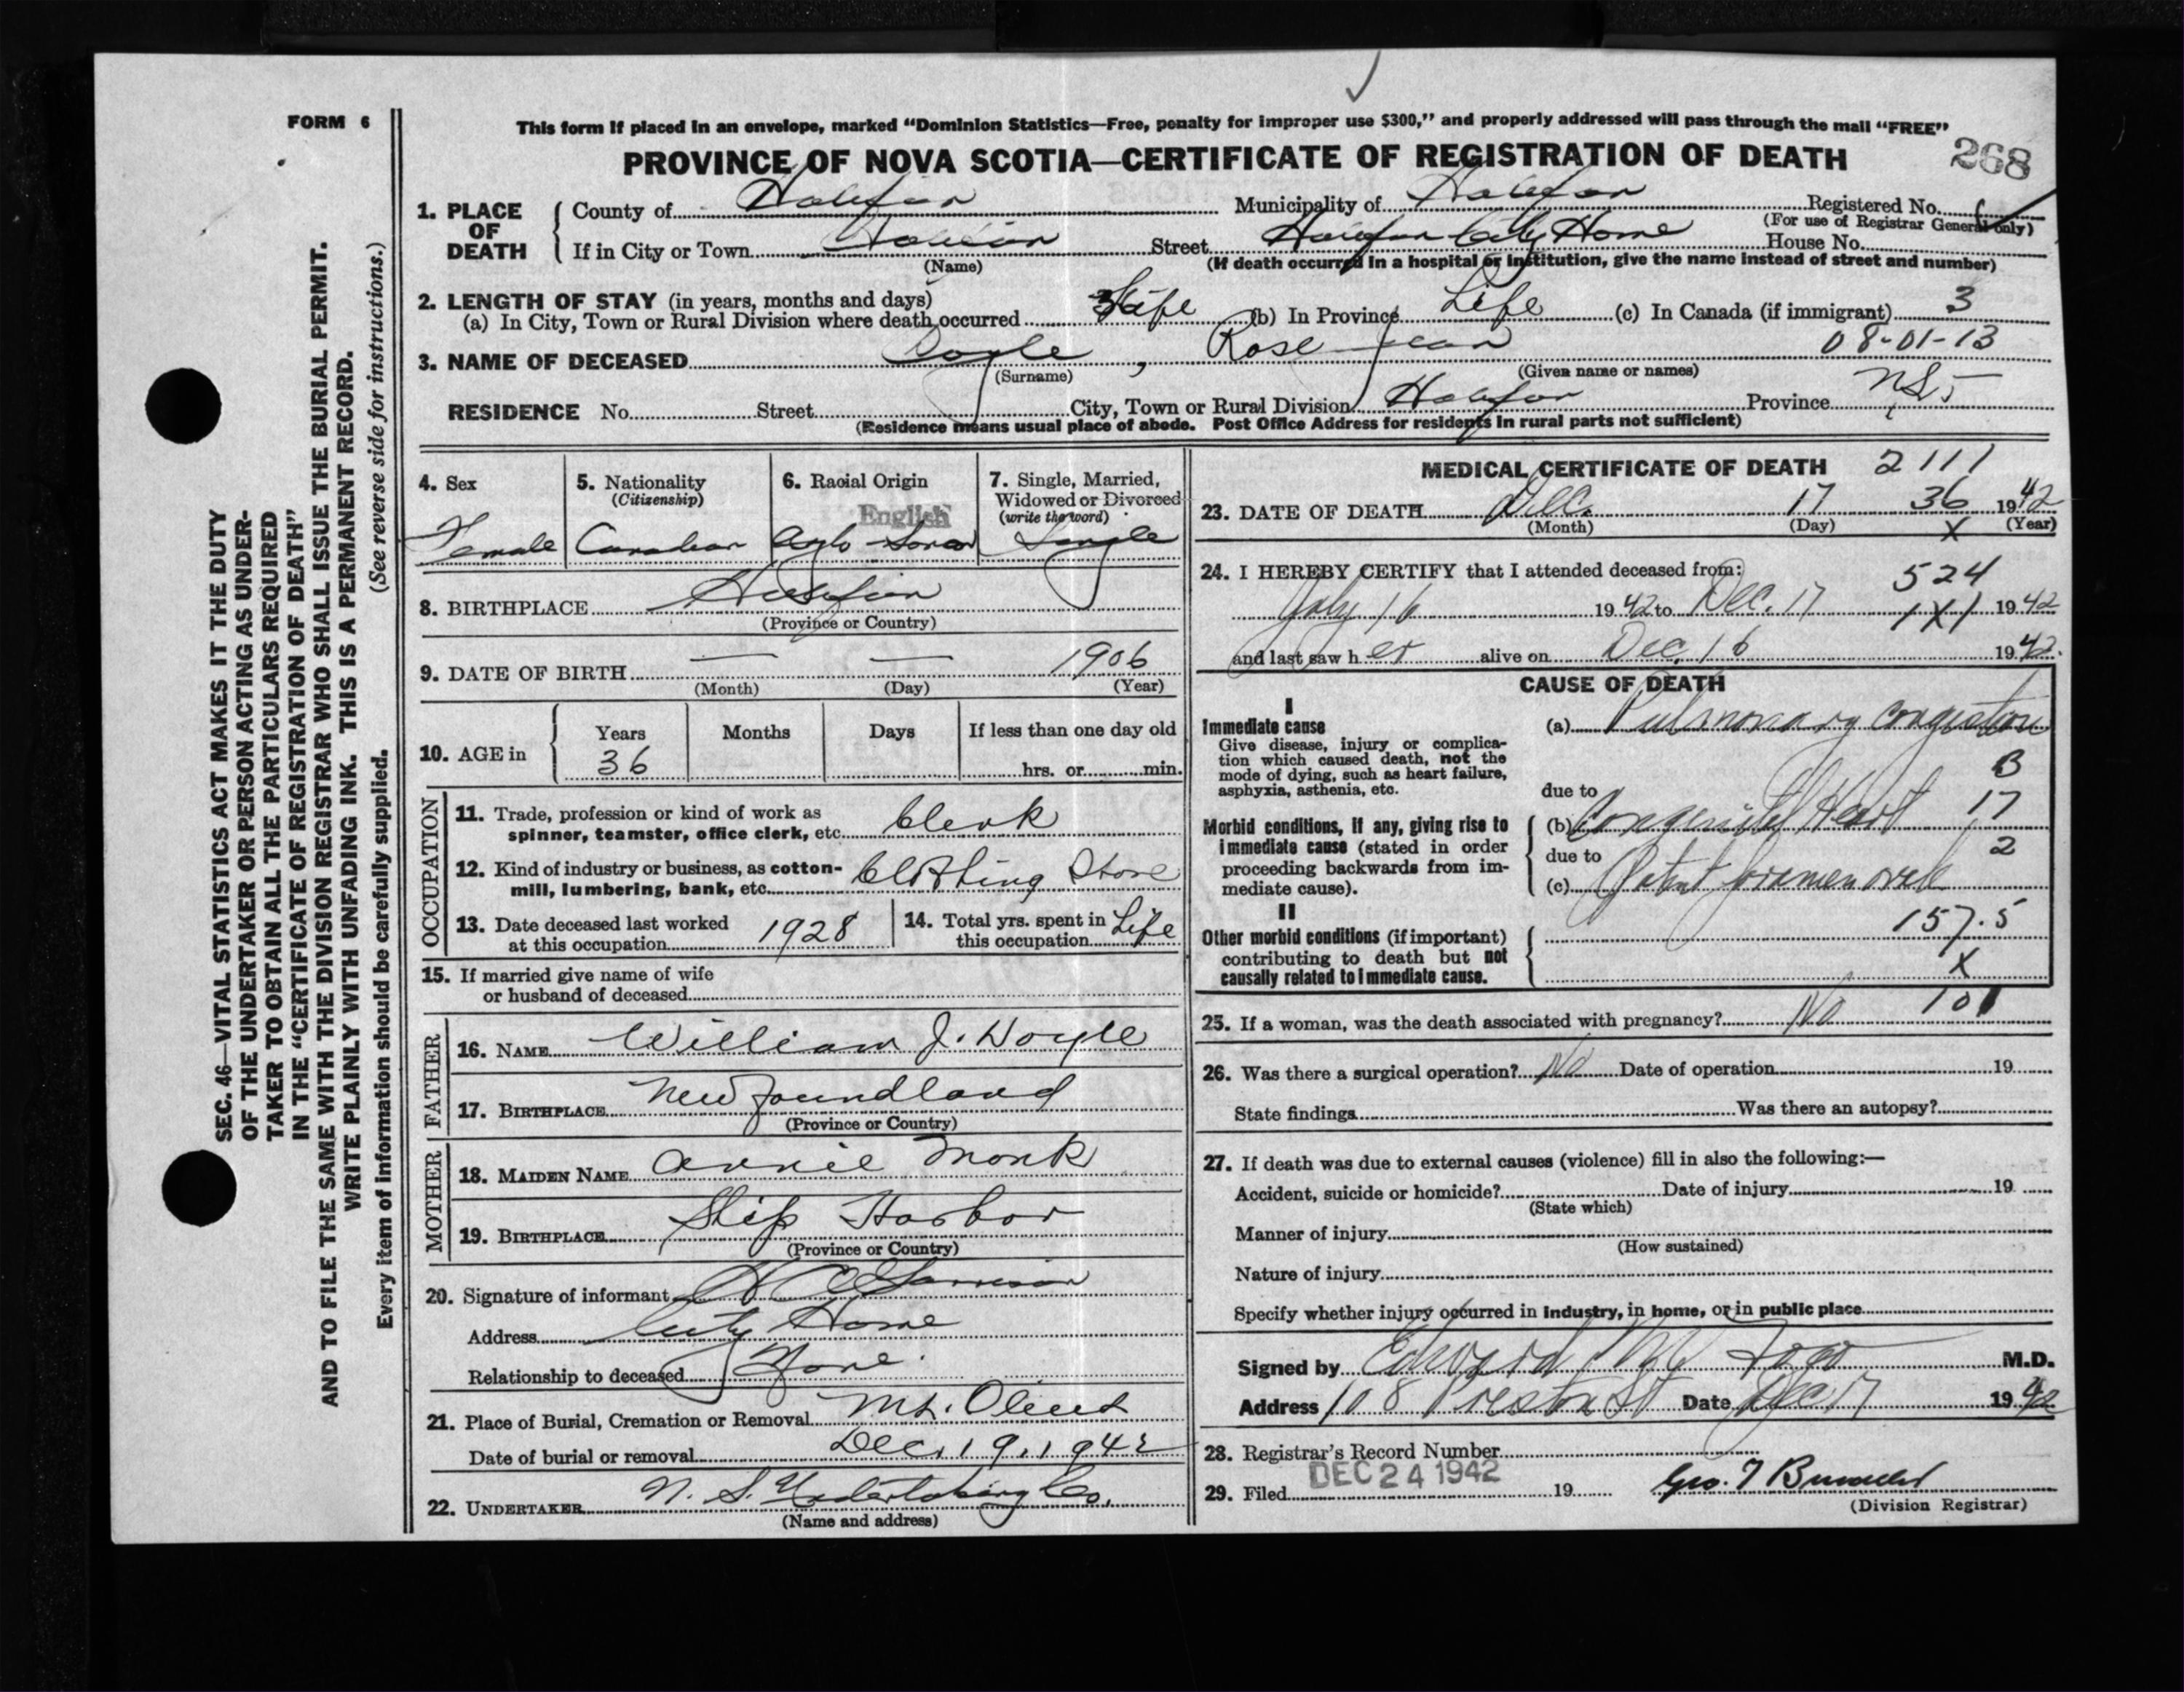 FORM 6
This form if placed in an envelope, marked “Dominion Statistics—Free, penalty for improper use $300,” and properly addressed will pass through the mail “FREE”
PROVINCE OF NOVA SCOTIA—CERTIFICATE OF REGISTRATION OF DEATH 268
1. PLACE OF DEATH County of Halifax Municipality of Halifax Registered No.
(For use of Registrar General only)
If in City or Town Halifax Street Halifax City Home House No.
(Name) (If death occurred in a hospital or institution, give the name instead of street and number)
2. LENGTH OF STAY (in years, months and days)
(a) In City, Town or Rural Division where death occurred Life (b) In Province Life (c) In Canada (if immigrant) 3
08-01-13
3. NAME OF DECEASED Doyle, Rose Jean
(Surname) (Given name or names)
RESIDENCE No. Street City, Town or Rural Division Halifax Province N.S.
(Residence means usual place of abode. Post Office Address for residents in rural parts not sufficient)
SEC. 46—VITAL STATISTICS ACT MAKES IT THE DUTY
OF THE UNDERTAKER OR PERSON ACTING AS UNDER-
TAKER TO OBTAIN ALL THE PARTICULARS REQUIRED
IN THE “CERTIFICATE OF REGISTRATION OF DEATH”
AND TO FILE THE SAME WITH THE DIVISION REGISTRAR WHO SHALL ISSUE THE BURIAL PERMIT.
WRITE PLAINLY WITH UNFADING INK. THIS IS A PERMANENT RECORD.
(See reverse side for instructions.)
Every item of information should be carefully supplied.
4. Sex
Female
5. Nationality
(Citizenship)
Canadian
6. Racial Origin
English
7. Single, Married,
Widowed or Divorced
(write the word)
Single
8. BIRTHPLACE Halifax
(Province or Country)
9. DATE OF BIRTH — — 1906
(Month) (Day) (Year)
10. AGE in Years Months Days If less than one day old
36 hrs. or min.
OCCUPATION
11. Trade, profession or kind of work as
spinner, teamster, office clerk, etc. Clerk
12. Kind of industry or business, as cotton-
mill, lumbering, bank, etc. Clothing Store
13. Date deceased last worked
at this occupation 1928
14. Total yrs. spent in
this occupation Life
15. If married give name of wife
or husband of deceased
FATHER
16. NAME William J. Doyle
17. BIRTHPLACE Newfoundland
(Province or Country)
MOTHER
18. MAIDEN NAME Annie Monk
19. BIRTHPLACE Ship Harbor
(Province or Country)
20. Signature of informant
Address City Home
Relationship to deceased None.
21. Place of Burial, Cremation or Removal Mt. Olivet
Date of burial or removal Dec. 19. 1942
22. UNDERTAKER N. S. Undertaking Co.
(Name and address)
MEDICAL CERTIFICATE OF DEATH 2111
23. DATE OF DEATH Dec. 17 36 1942
(Month) (Day) X (Year)
24. I HEREBY CERTIFY that I attended deceased from: 524
July 16 1942 to Dec. 17 1X1 1942
and last saw her alive on Dec. 16 1942.
CAUSE OF DEATH
I
Immediate cause
Give disease, injury or complica-
tion which caused death, not the
mode of dying, such as heart failure,
asphyxia, asthenia, etc.
(a) Pulmonary congestion
B
due to
17
Morbid conditions, if any, giving rise to
immediate cause (stated in order
proceeding backwards from im-
mediate cause).
(b) Congenital Heart
due to 2
(c) Patent foramen ovale
II
Other morbid conditions (if important)
contributing to death but not
causally related to immediate cause.
157.5
X
101
25. If a woman, was the death associated with pregnancy? No
26. Was there a surgical operation? No Date of operation 19
State findings Was there an autopsy?
27. If death was due to external causes (violence) fill in also the following:—
Accident, suicide or homicide? Date of injury 19
(State which)
Manner of injury
(How sustained)
Nature of injury
Specify whether injury occurred in industry, in home, or in public place
Signed by Edward M. Fogo M.D.
Address 108 Preston St Date Dec 17 1942
28. Registrar’s Record Number
29. Filed DEC 24 1942 19 Geo. T
(Division Registrar)